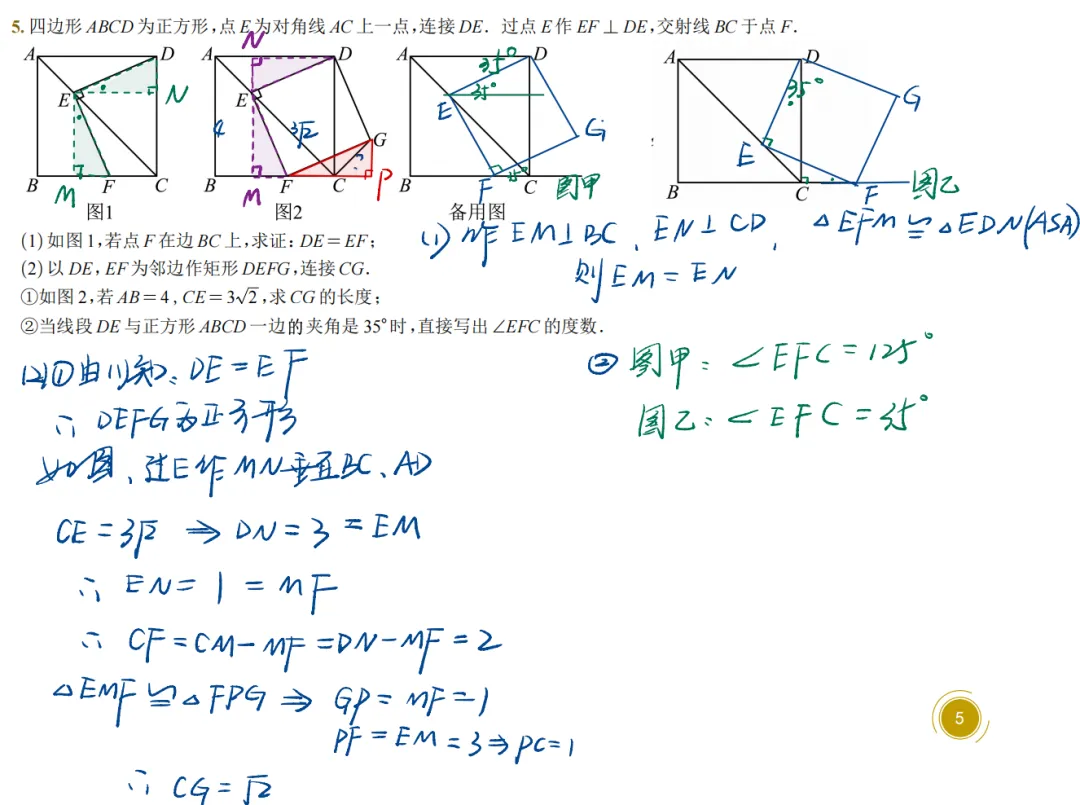 5. 四边形ABCD为正方形,点E为对角线AC上一点,连接DE. 过点E作EF⊥DE,交射线BC于点F.
A D E N B M F C
图1
A N D E 4 3√2 G B M F C P
图2
A D 35° 35° E G B F C 图甲
备用图
A D 35° G E B C F 图乙
(1)如图1,若点F在边BC上,求证:DE=EF;
(2)以DE,EF为邻边作矩形DEFG,连接CG.
①如图2,若AB=4,CE=3√2,求CG的长度;
②当线段DE与正方形ABCD一边的夹角是35°时,直接写出∠EFC的度数.
(1) 作EM⊥BC、EN⊥CD、△EFM≌△EDN(ASA)
则EM=EN
(2)①由(1)知: DE=EF
∴ DEFG为正方形
如图、过E作MN垂直BC、AD
CE=3√2 ⇒ DN=3=EM
∴ EN=1=MF
∴ CF=CM-MF=DN-MF=2
△EMF≌△FPG ⇒ GP=MF=1
PF=EM=3⇒PC=1
∴ CG=√2
② 图甲: ∠EFC=125°
图乙: ∠EFC=35°
5